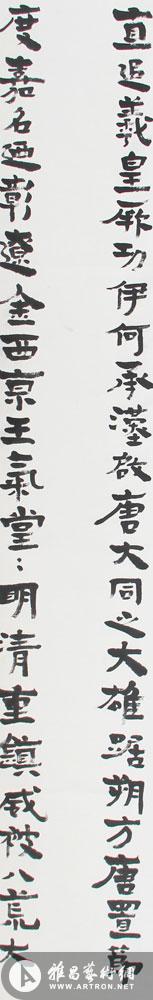 直追羲皇厥功伊何承漢啟唐大同之大雄踞朔方唐置為
度嘉名迺彰遼金西京王氣堂〻明清重鎮威被八荒大
雅昌藝術網
WWW.ARTRON.NET